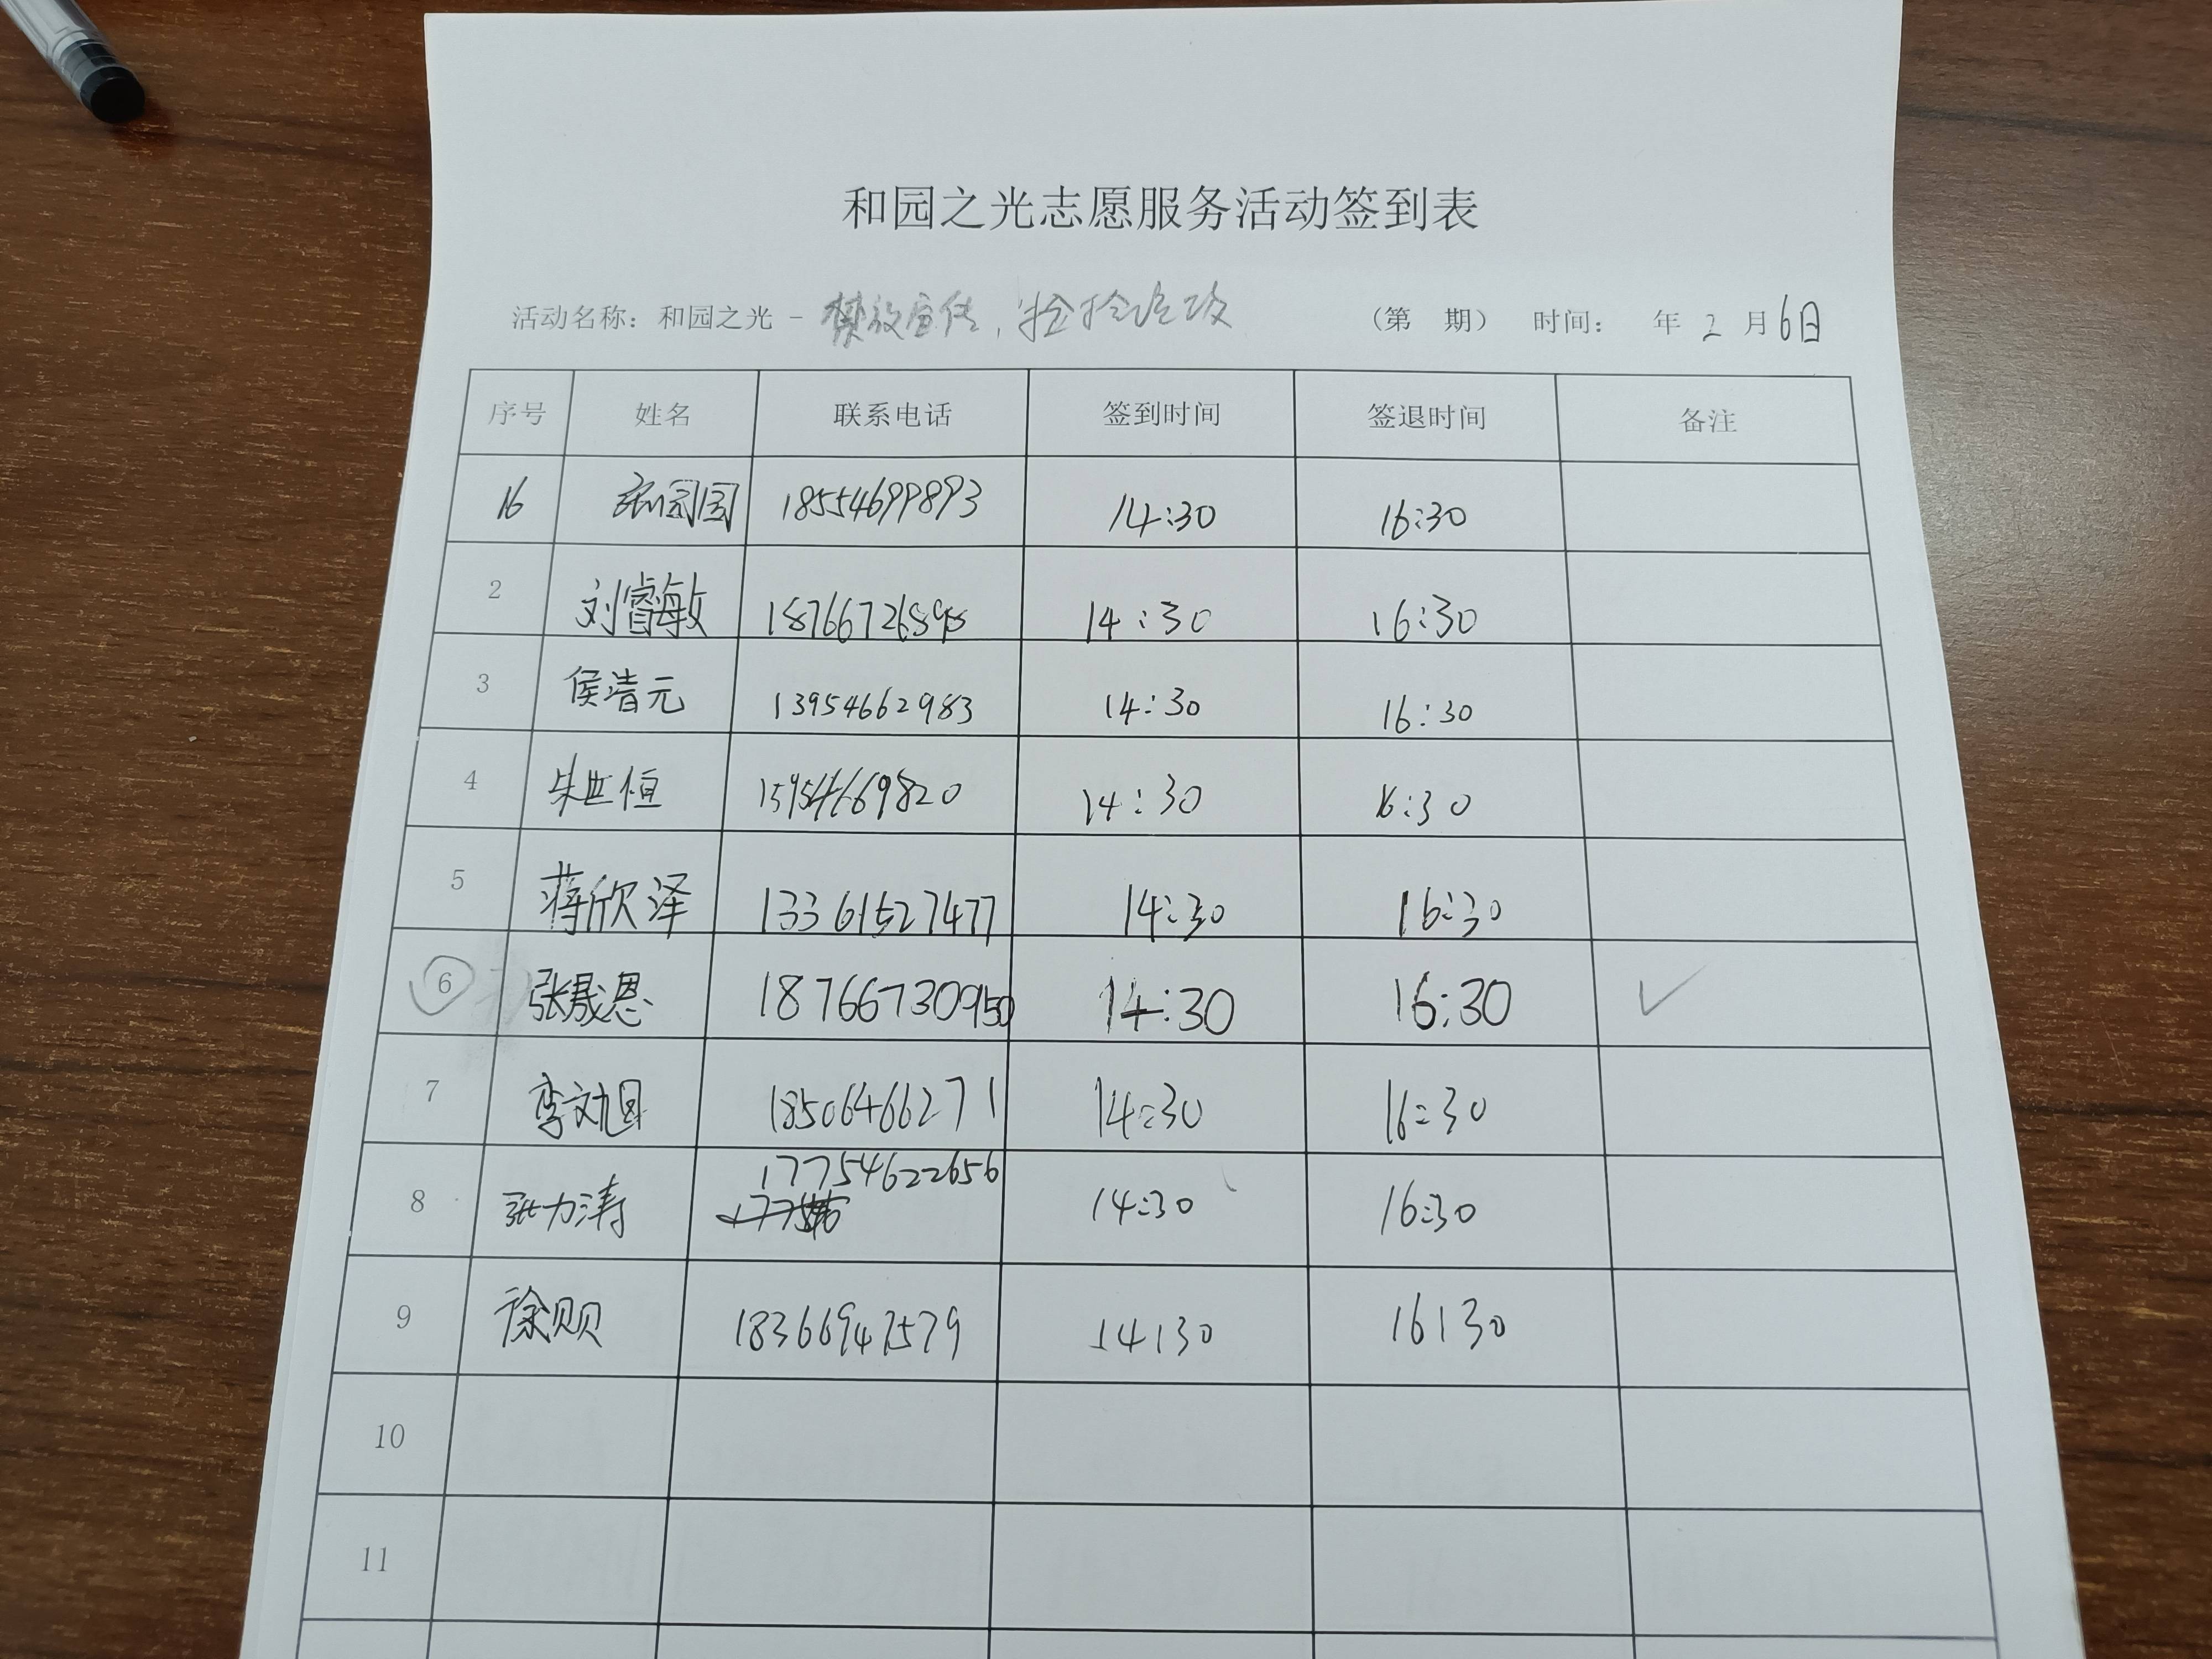 和园之光志愿服务活动签到表
活动名称：和园之光 - 禁放宣传， （第 期） 时间： 年 2 月 6日
序号 姓名 联系电话 签到时间 签退时间 备注
16 张园园 18554699893 14:30 16:30
2 刘睿敏 18766726898 14:30 16:30
3 侯浩元 13954662983 14:30 16:30
4 朱世恒 15954669820 14:30 16:30
5 蒋欣泽 13361527477 14:30 16:30
6 张晟恩 18766730950 14:30 16:30 ✓
7 李文旭 18506466271 14:30 16:30
8 张力涛 17754622656 14:30 16:30
9 徐贝贝 18366947579 14:30 16:30
10
11